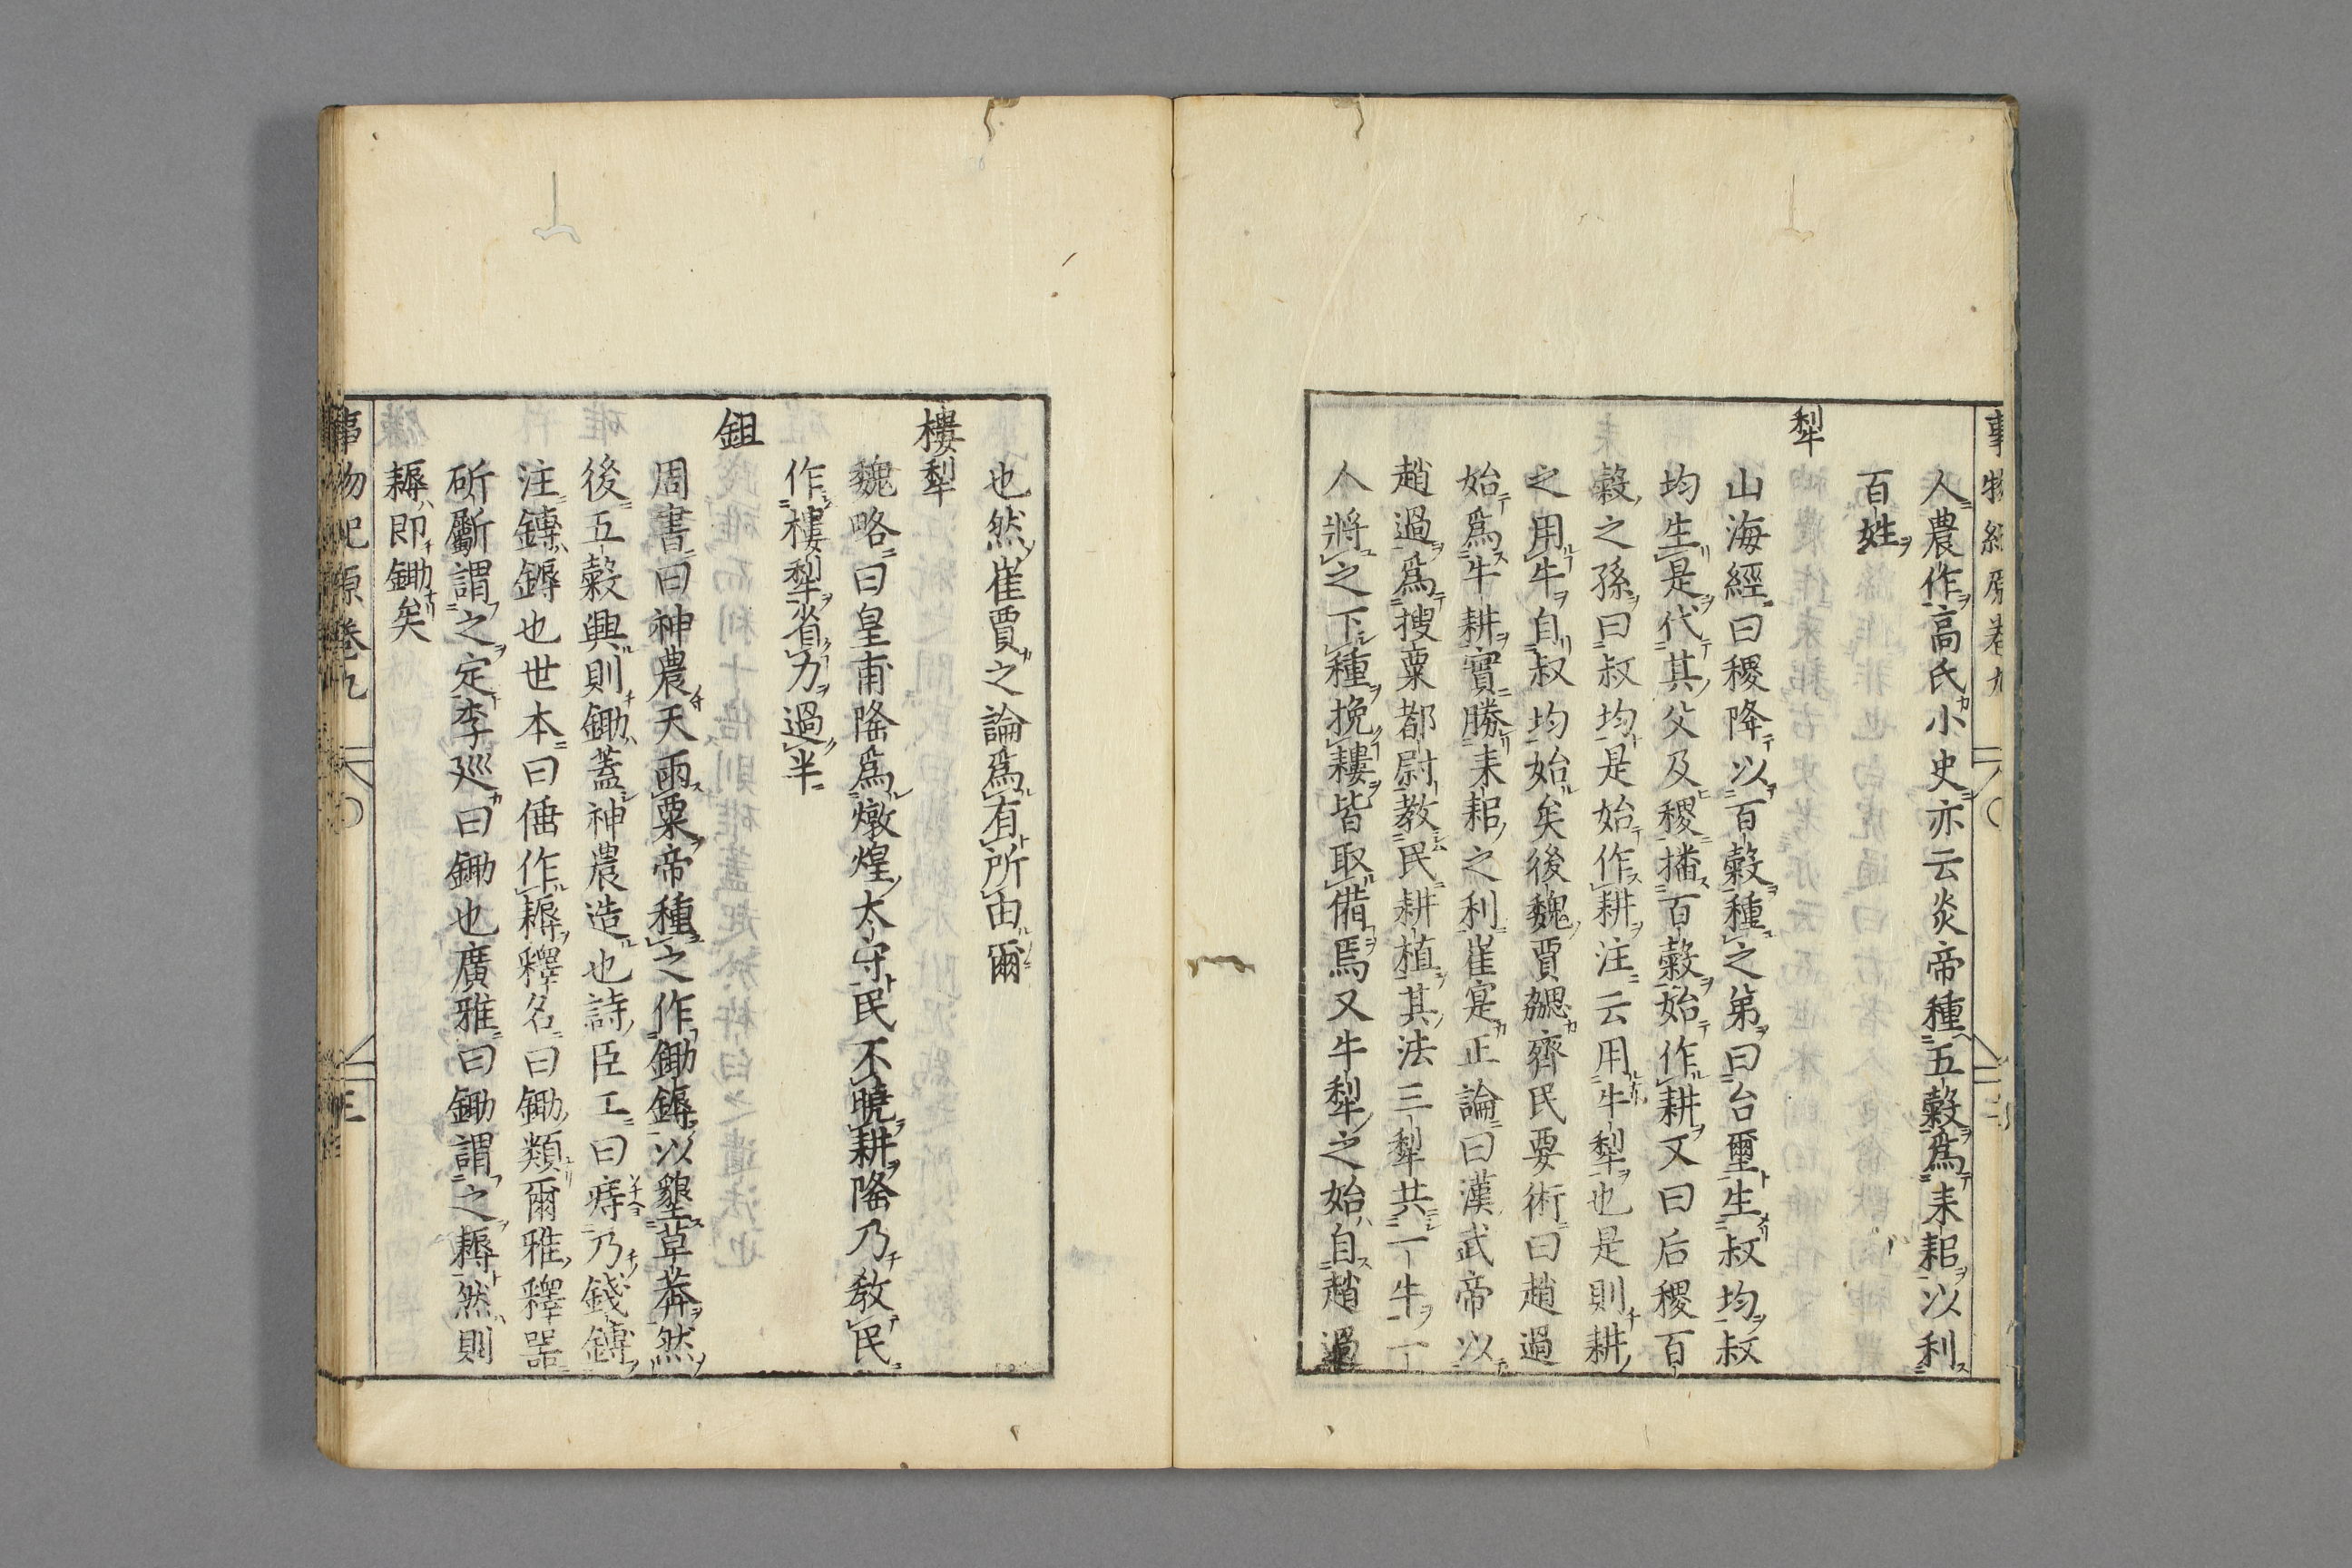 人農作高氏小史亦云炎帝種五糓爲耒耜以利
百姓
犁
山海經曰稷降以百糓種之弟曰台璽生叔均叔
均生是代其父及稷播百糓始作耕又曰后稷百
糓之孫曰叔均是始作耕注云用牛犁也是則耕
之用牛自叔均始矣後魏賈勰齊民要術曰趙過
始爲牛耕實勝耒耜之利崔寔正論曰漢武帝以
趙過爲搜粟都尉教民耕植其法三犁共一牛一
人將之下種挽耬皆取備焉又牛犁之始自趙過
也然崔賈之論爲有所由爾
樓犁
魏略曰皇甫隆爲燉煌太守民不曉耕隆乃教民
作樓犁省力過半
鉏
周書曰神農天雨粟帝種之作鋤鎒以墾草莽然
後五糓興則鋤蓋神農造也詩臣工曰庤乃錢鎛
注鎛鎒也世本曰倕作耨釋名曰鋤類爾雅釋器
斫斸謂之定李巡曰鋤也廣雅曰鋤謂之耨然則
耨即鋤矣
事物紀原卷九